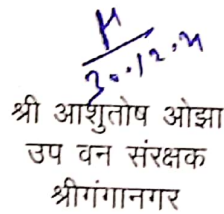 30.12.21
श्री आशुतोष ओझा
उप वन संरक्षक
श्रीगंगानगर